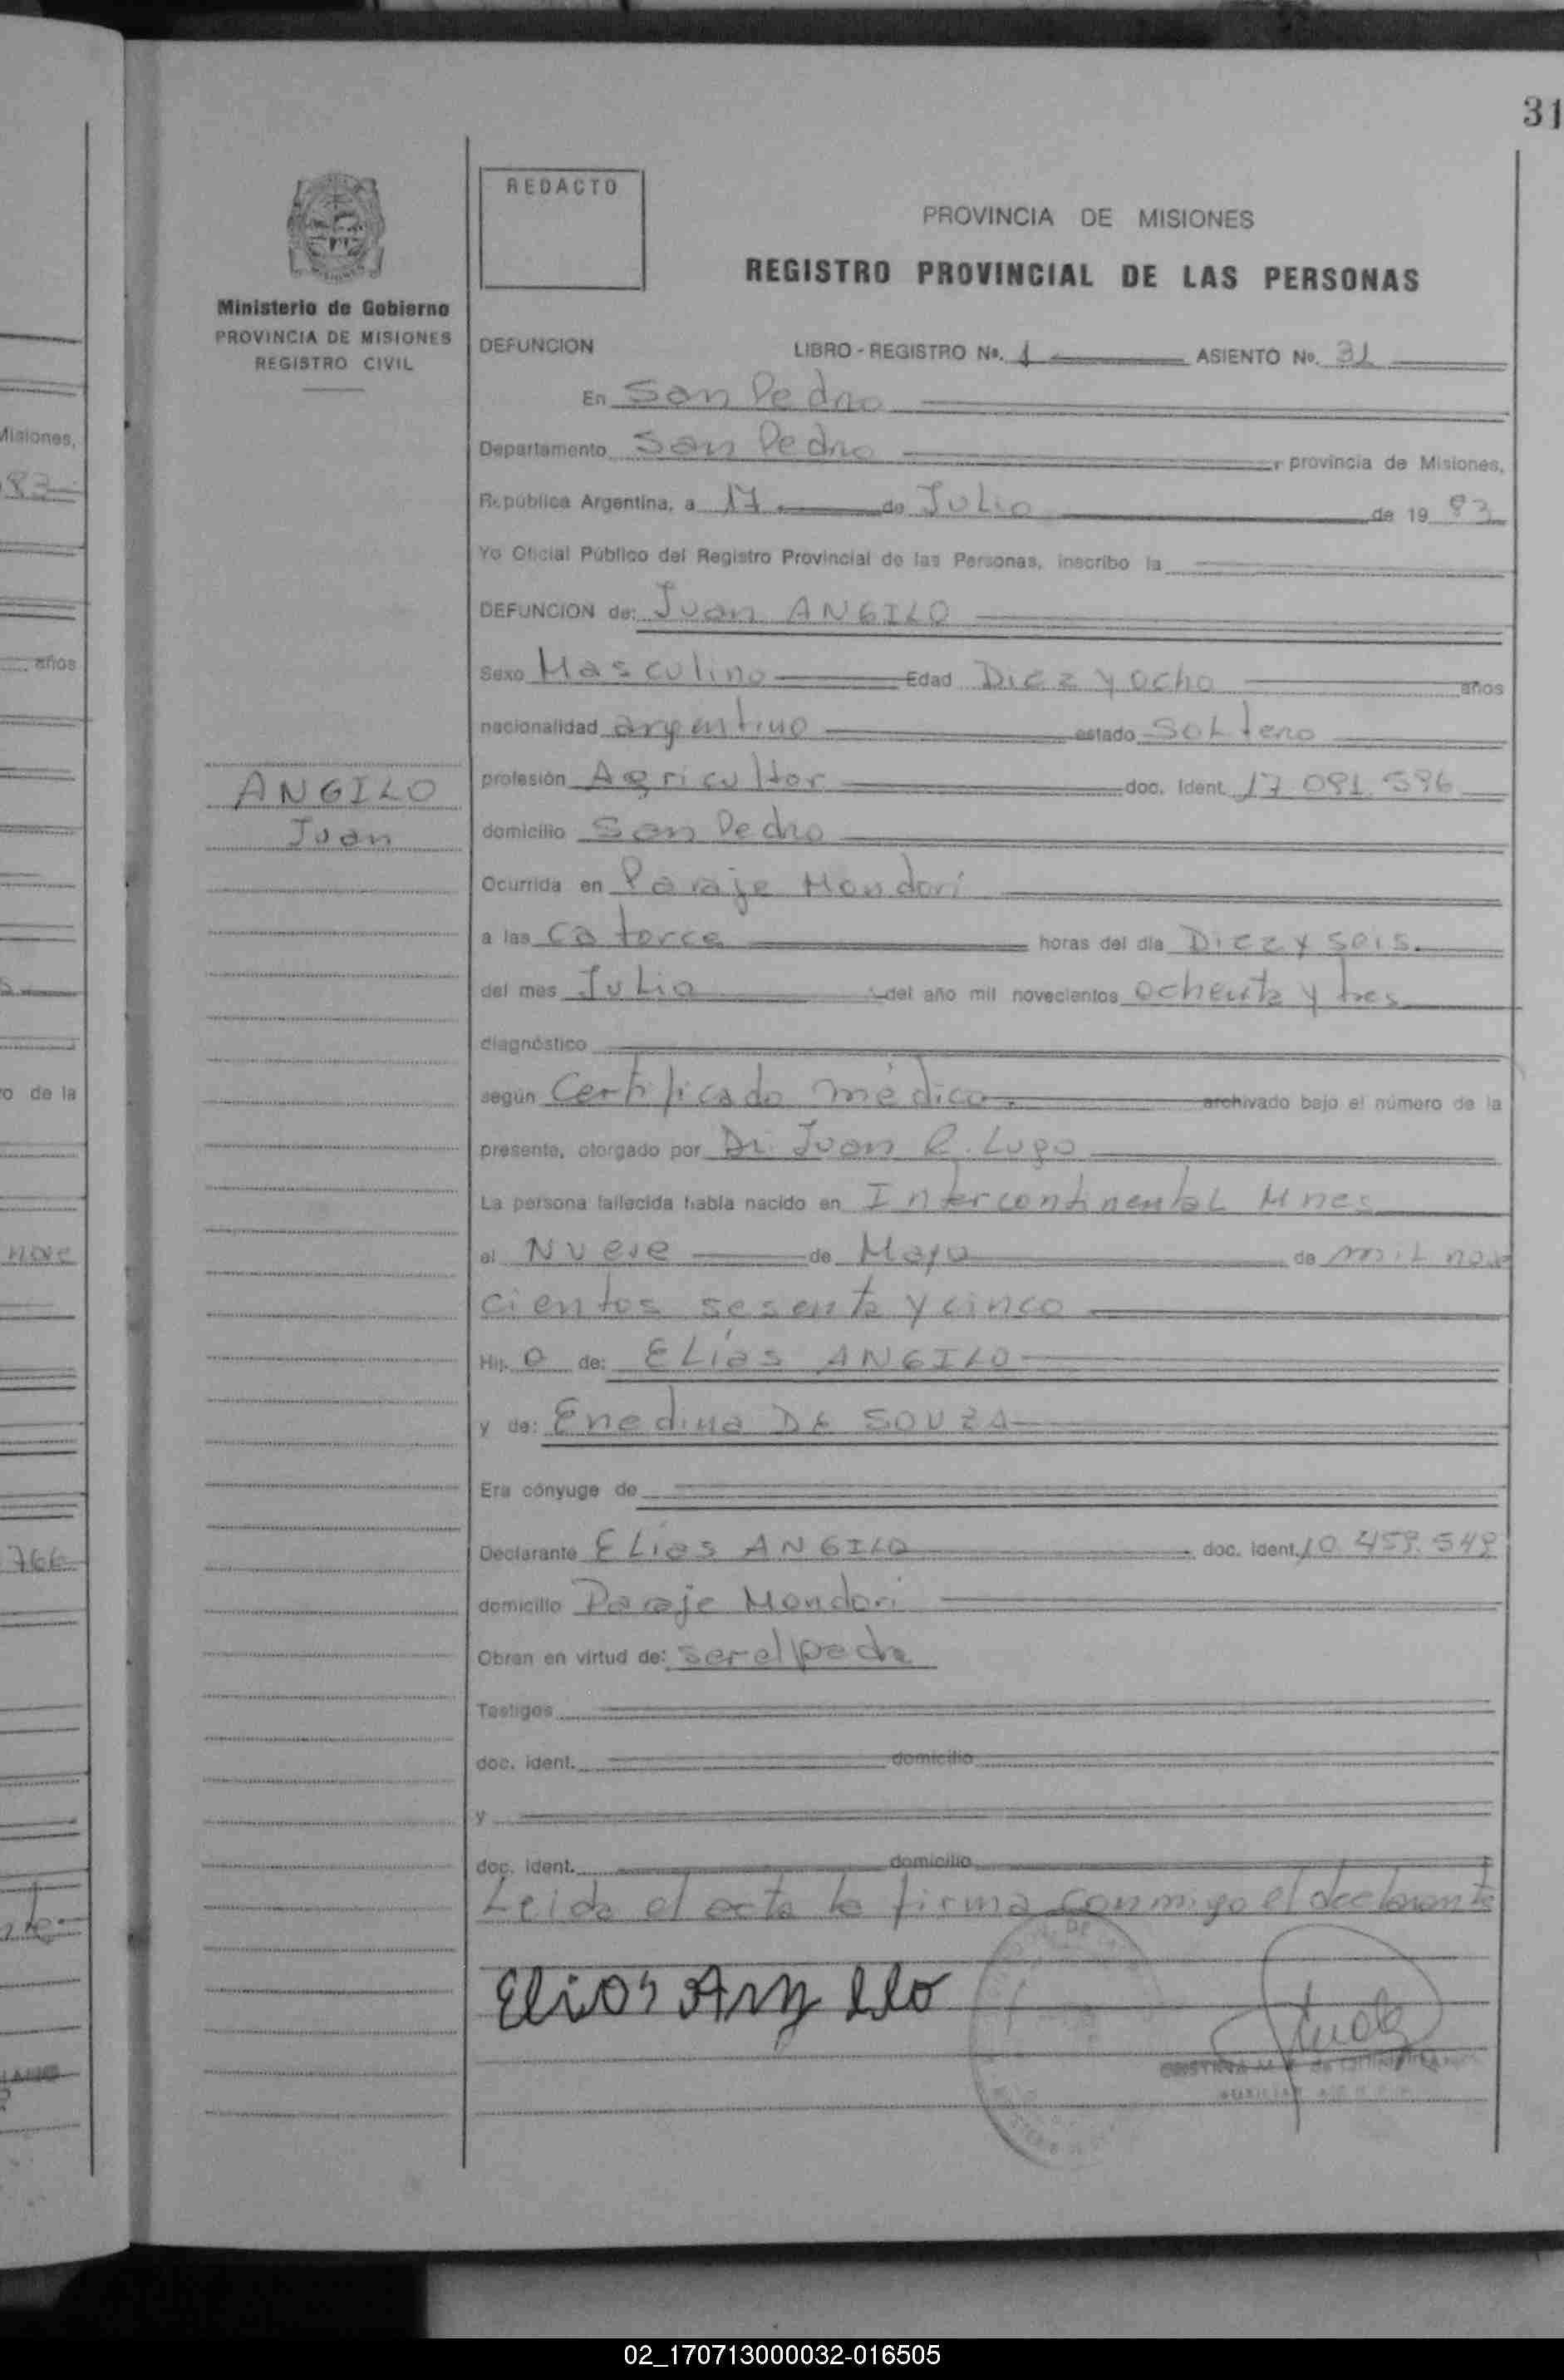 31
REDACTO
PROVINCIA DE MISIONES
REGISTRO PROVINCIAL DE LAS PERSONAS
Ministerio de Gobierno
PROVINCIA DE MISIONES
REGISTRO CIVIL
DEFUNCION LIBRO - REGISTRO Nº. 1 ASIENTO Nº. 31
En San Pedro
Departamento San Pedro, provincia de Misiones,
República Argentina, a 17 de Julio de 19 83
Yo Oficial Público del Registro Provincial de las Personas, inscribo la
DEFUNCION de: Juan ANGILO
Sexo Masculino Edad Diez y ocho años
nacionalidad argentino estado Soltero
ANGILO
Juan
profesión Agricultor doc. Ident. 17.081.596
domicilio San Pedro
Ocurrida en Paraje Mondori
a las catorce horas del día Diez y seis.
del mes Julio del año mil novecientos ochenta y tres
diagnóstico
según Certificado médico. archivado bajo el número de la
presente, otorgado por Dr. Juan R. Lugo
La persona fallecida había nacido en Intercontinental Mnes
el Nueve de Mayo de mil nove
cientos sesenta y cinco
Hij. o de: Elías ANGILO
y de: Enedina DE SOUZA
Era cónyuge de
Declarante Elias ANGILO doc. ident. 10.459.549
domicilio Paraje Mondori
Obran en virtud de: ser el padre
Testigos
doc. ident. domicilio
y
doc. ident. domicilio
Leida el acta la firma conmigo el declarante
Elios
Misiones,
83
años
o de la
nove
766
02_170713000032-016505